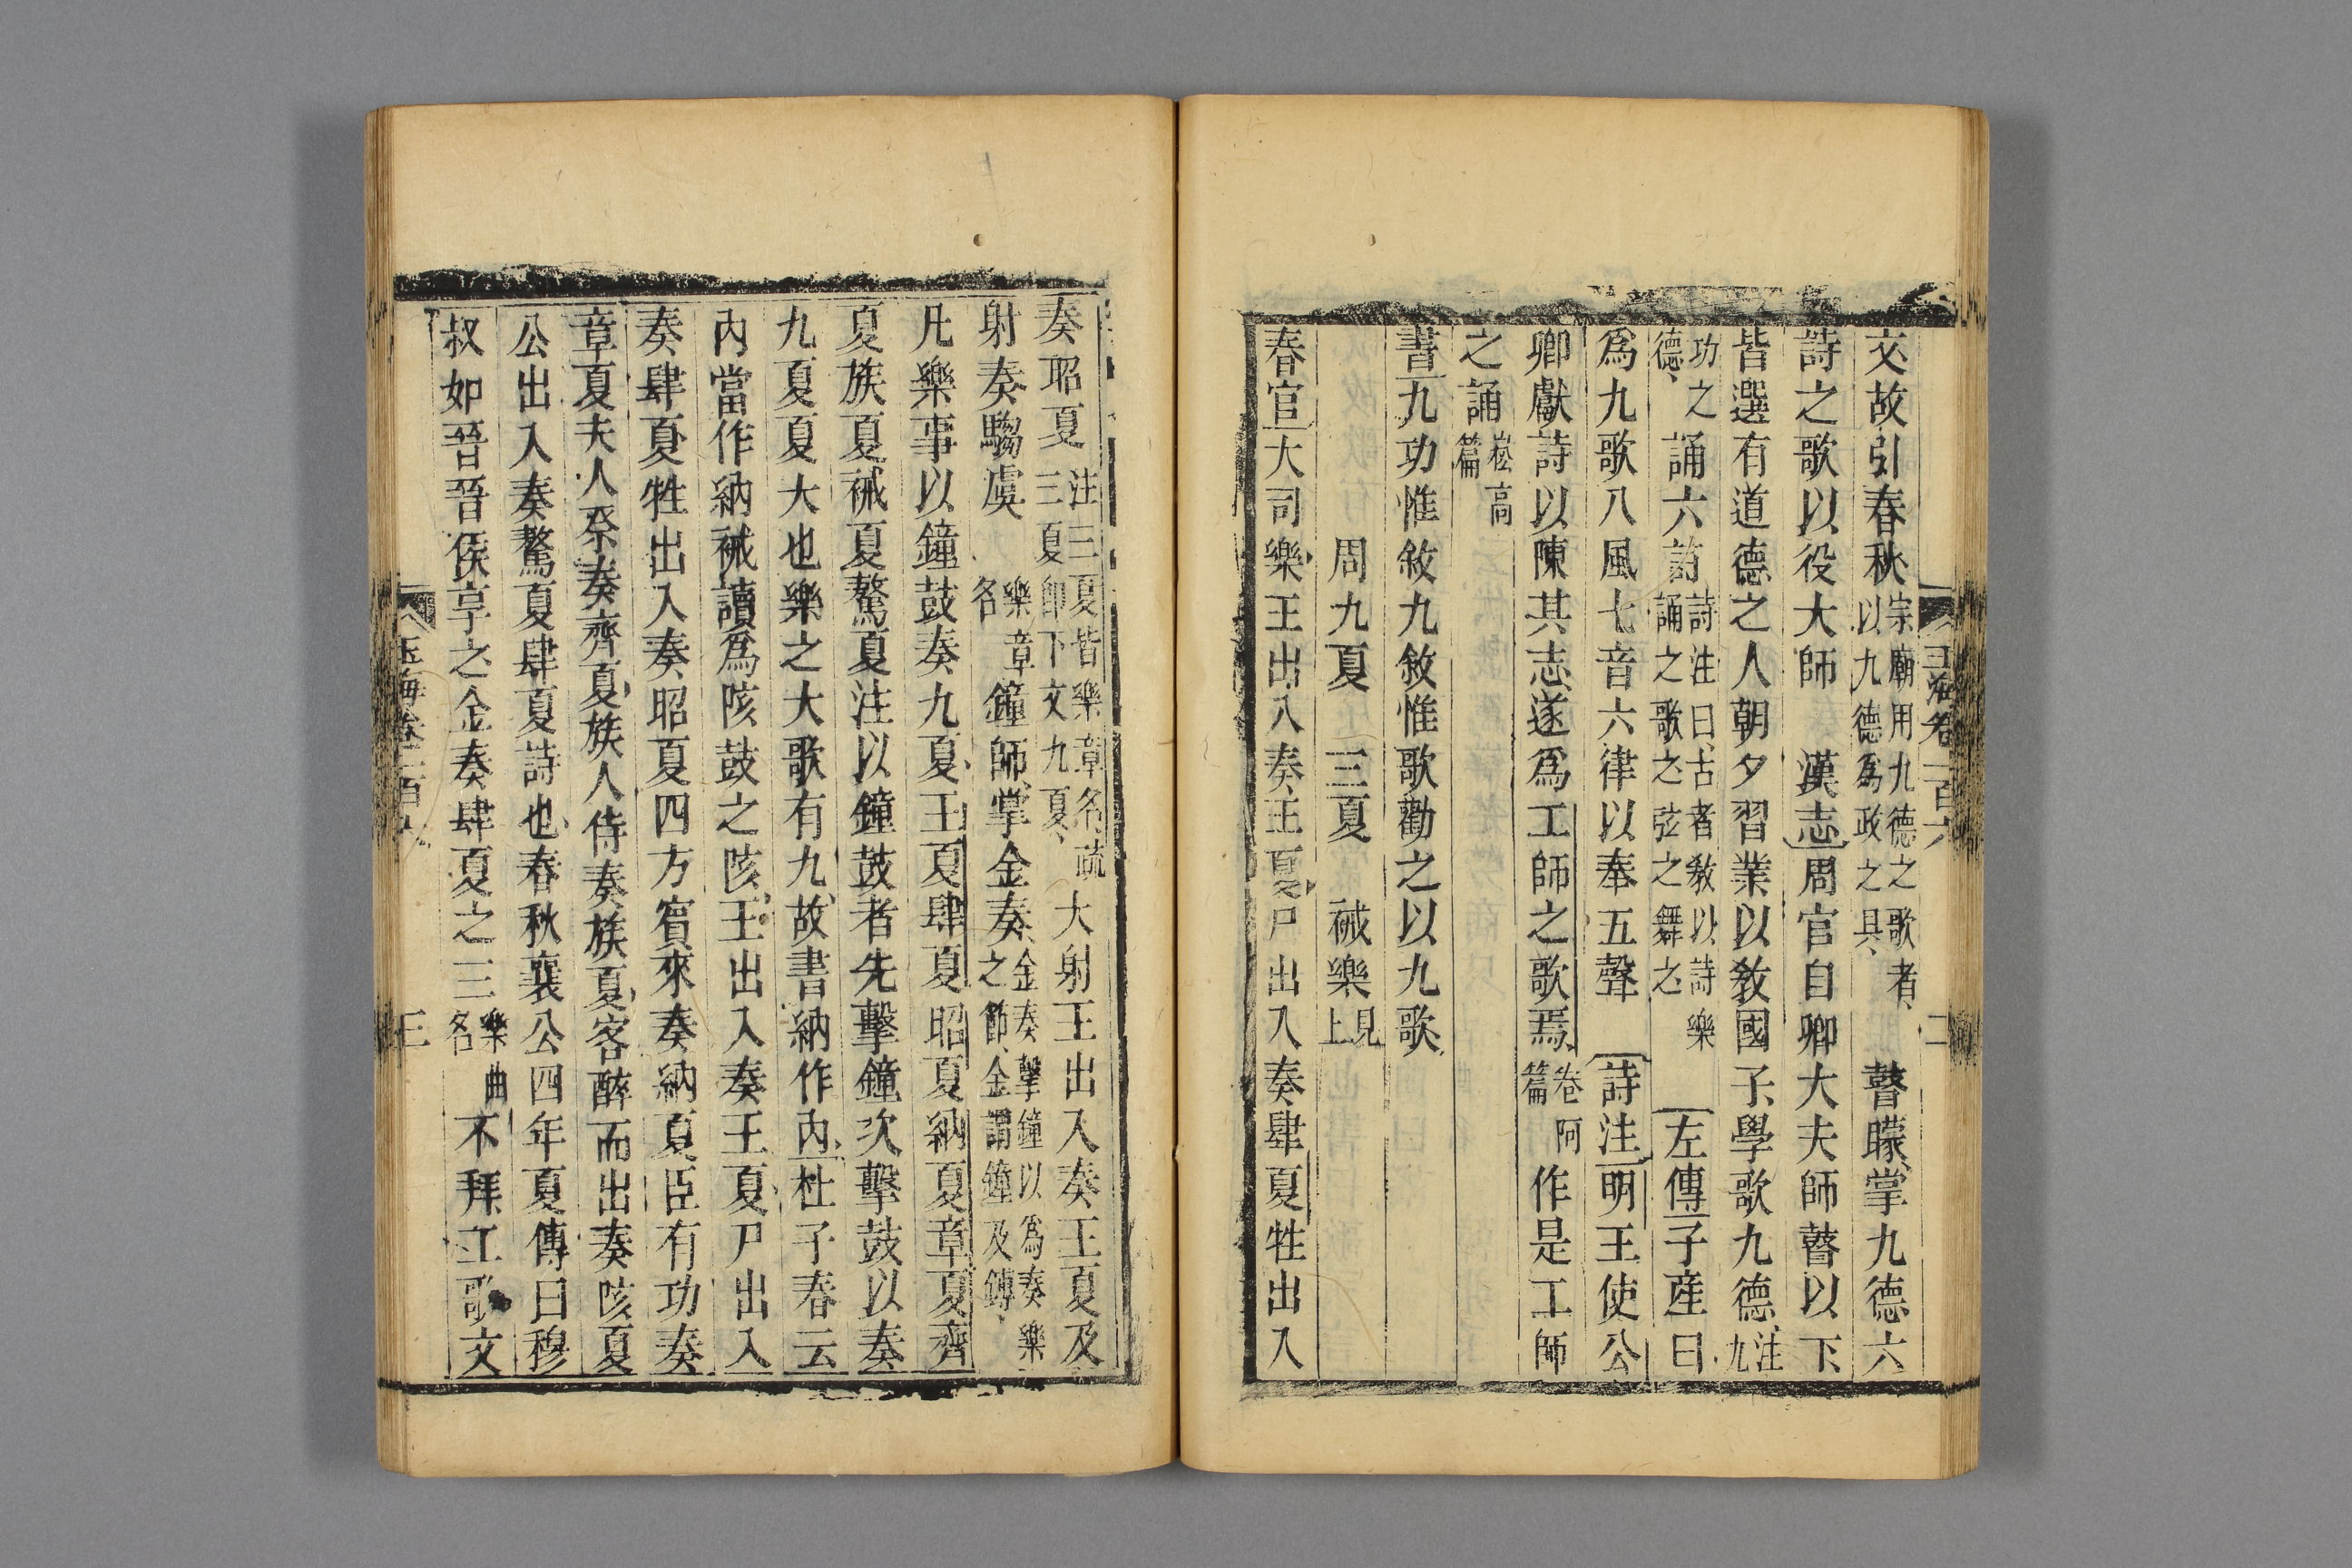 玉海卷一百六 二
文故引春秋宗廟用九德之歌者以九德爲政之具瞽矇掌九德六
詩之歌以役大師 漢志周官自卿大夫師瞽以下
皆選有道德之人朝夕習業以敎國子學歌九德注九
功之德誦六詩詩注曰古者敎以詩樂誦之歌之弦之舞之 左傳子産曰
爲九歌八風七音六律以奉五聲 詩注明王使公
卿獻詩以陳其志遂爲工師之歌焉卷阿篇作是工師
之誦崧高篇
書九功惟敘九敘惟歌勸之以九歌
周九夏 三夏 祴樂見上
春官大司樂王出入奏王夏尸出入奏肆夏牲出入
奏昭夏注三夏皆樂章名疏三夏卽下文九夏大射王出入奏王夏及
射奏騶虞樂章名鐘師掌金奏金奏擊鐘以爲奏樂之節金謂鐘及鎛
凡樂事以鐘鼓奏九夏王夏肆夏昭夏納夏章夏齊
夏族夏祴夏驁夏注以鐘鼓者先擊鐘次擊鼓以奏
九夏夏大也樂之大歌有九故書納作內杜子春云
內當作納祴讀爲陔鼓之陔王出入奏王夏尸出入
奏肆夏牲出入奏昭夏四方賓來奏納夏臣有功奏
章夏夫人祭奏齊夏族人侍奏族夏客醉而出奏陔夏
公出入奏驁夏肆夏詩也春秋襄公四年夏傳曰穆
叔如晉晉侯享之金奏肆夏之三樂曲名不拜工歌文
玉海卷一百六 三